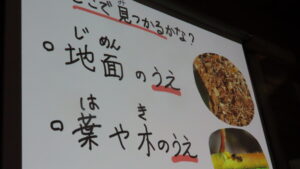 どこで見つかるかな？
。地面のうえ
じめん
。葉や木のうえ
は き